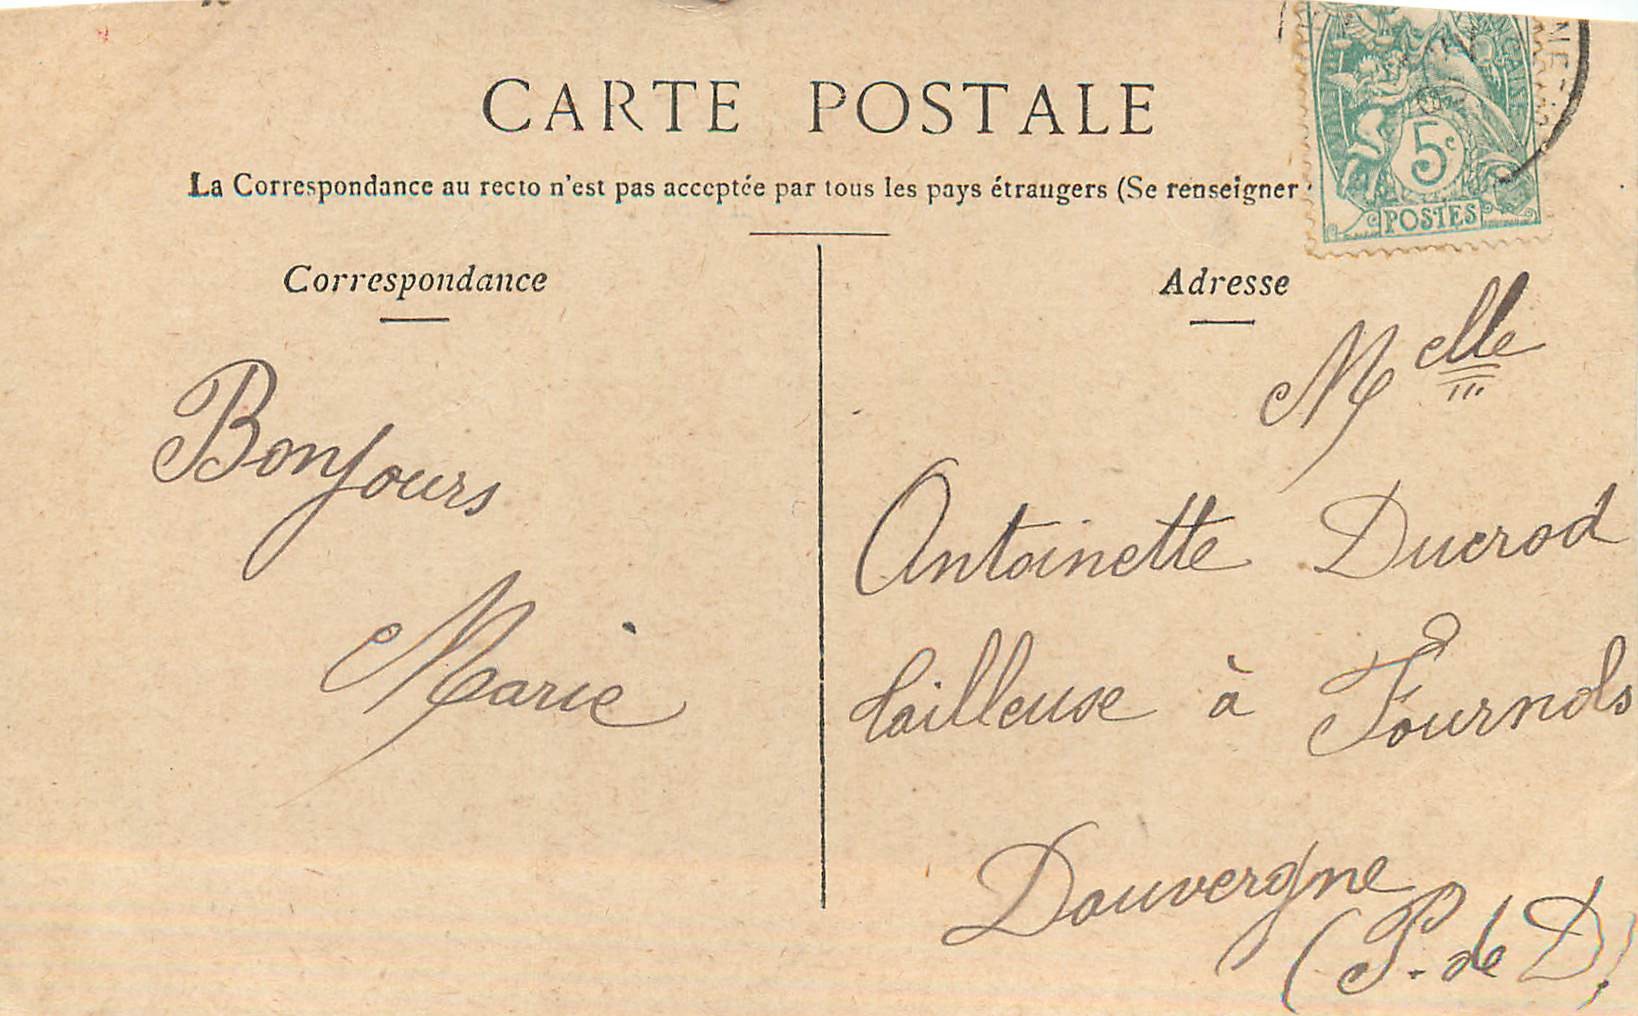 CARTE POSTALE
La Correspondance au recto n'est pas acceptée par tous les pays étrangers (Se renseigner
Correspondance
Adresse
5c
POSTES
Bonjours
Marie
Melle
Antoinette Ducrod
tailleuse à Fournols
Dauvergne
(P. de D.)